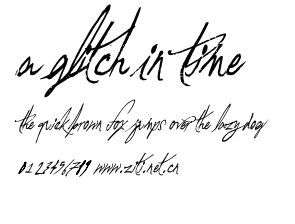 a glitch in time
the quick brown fox jumps over the lazy dog
0123456789 www.ziti.net.cn